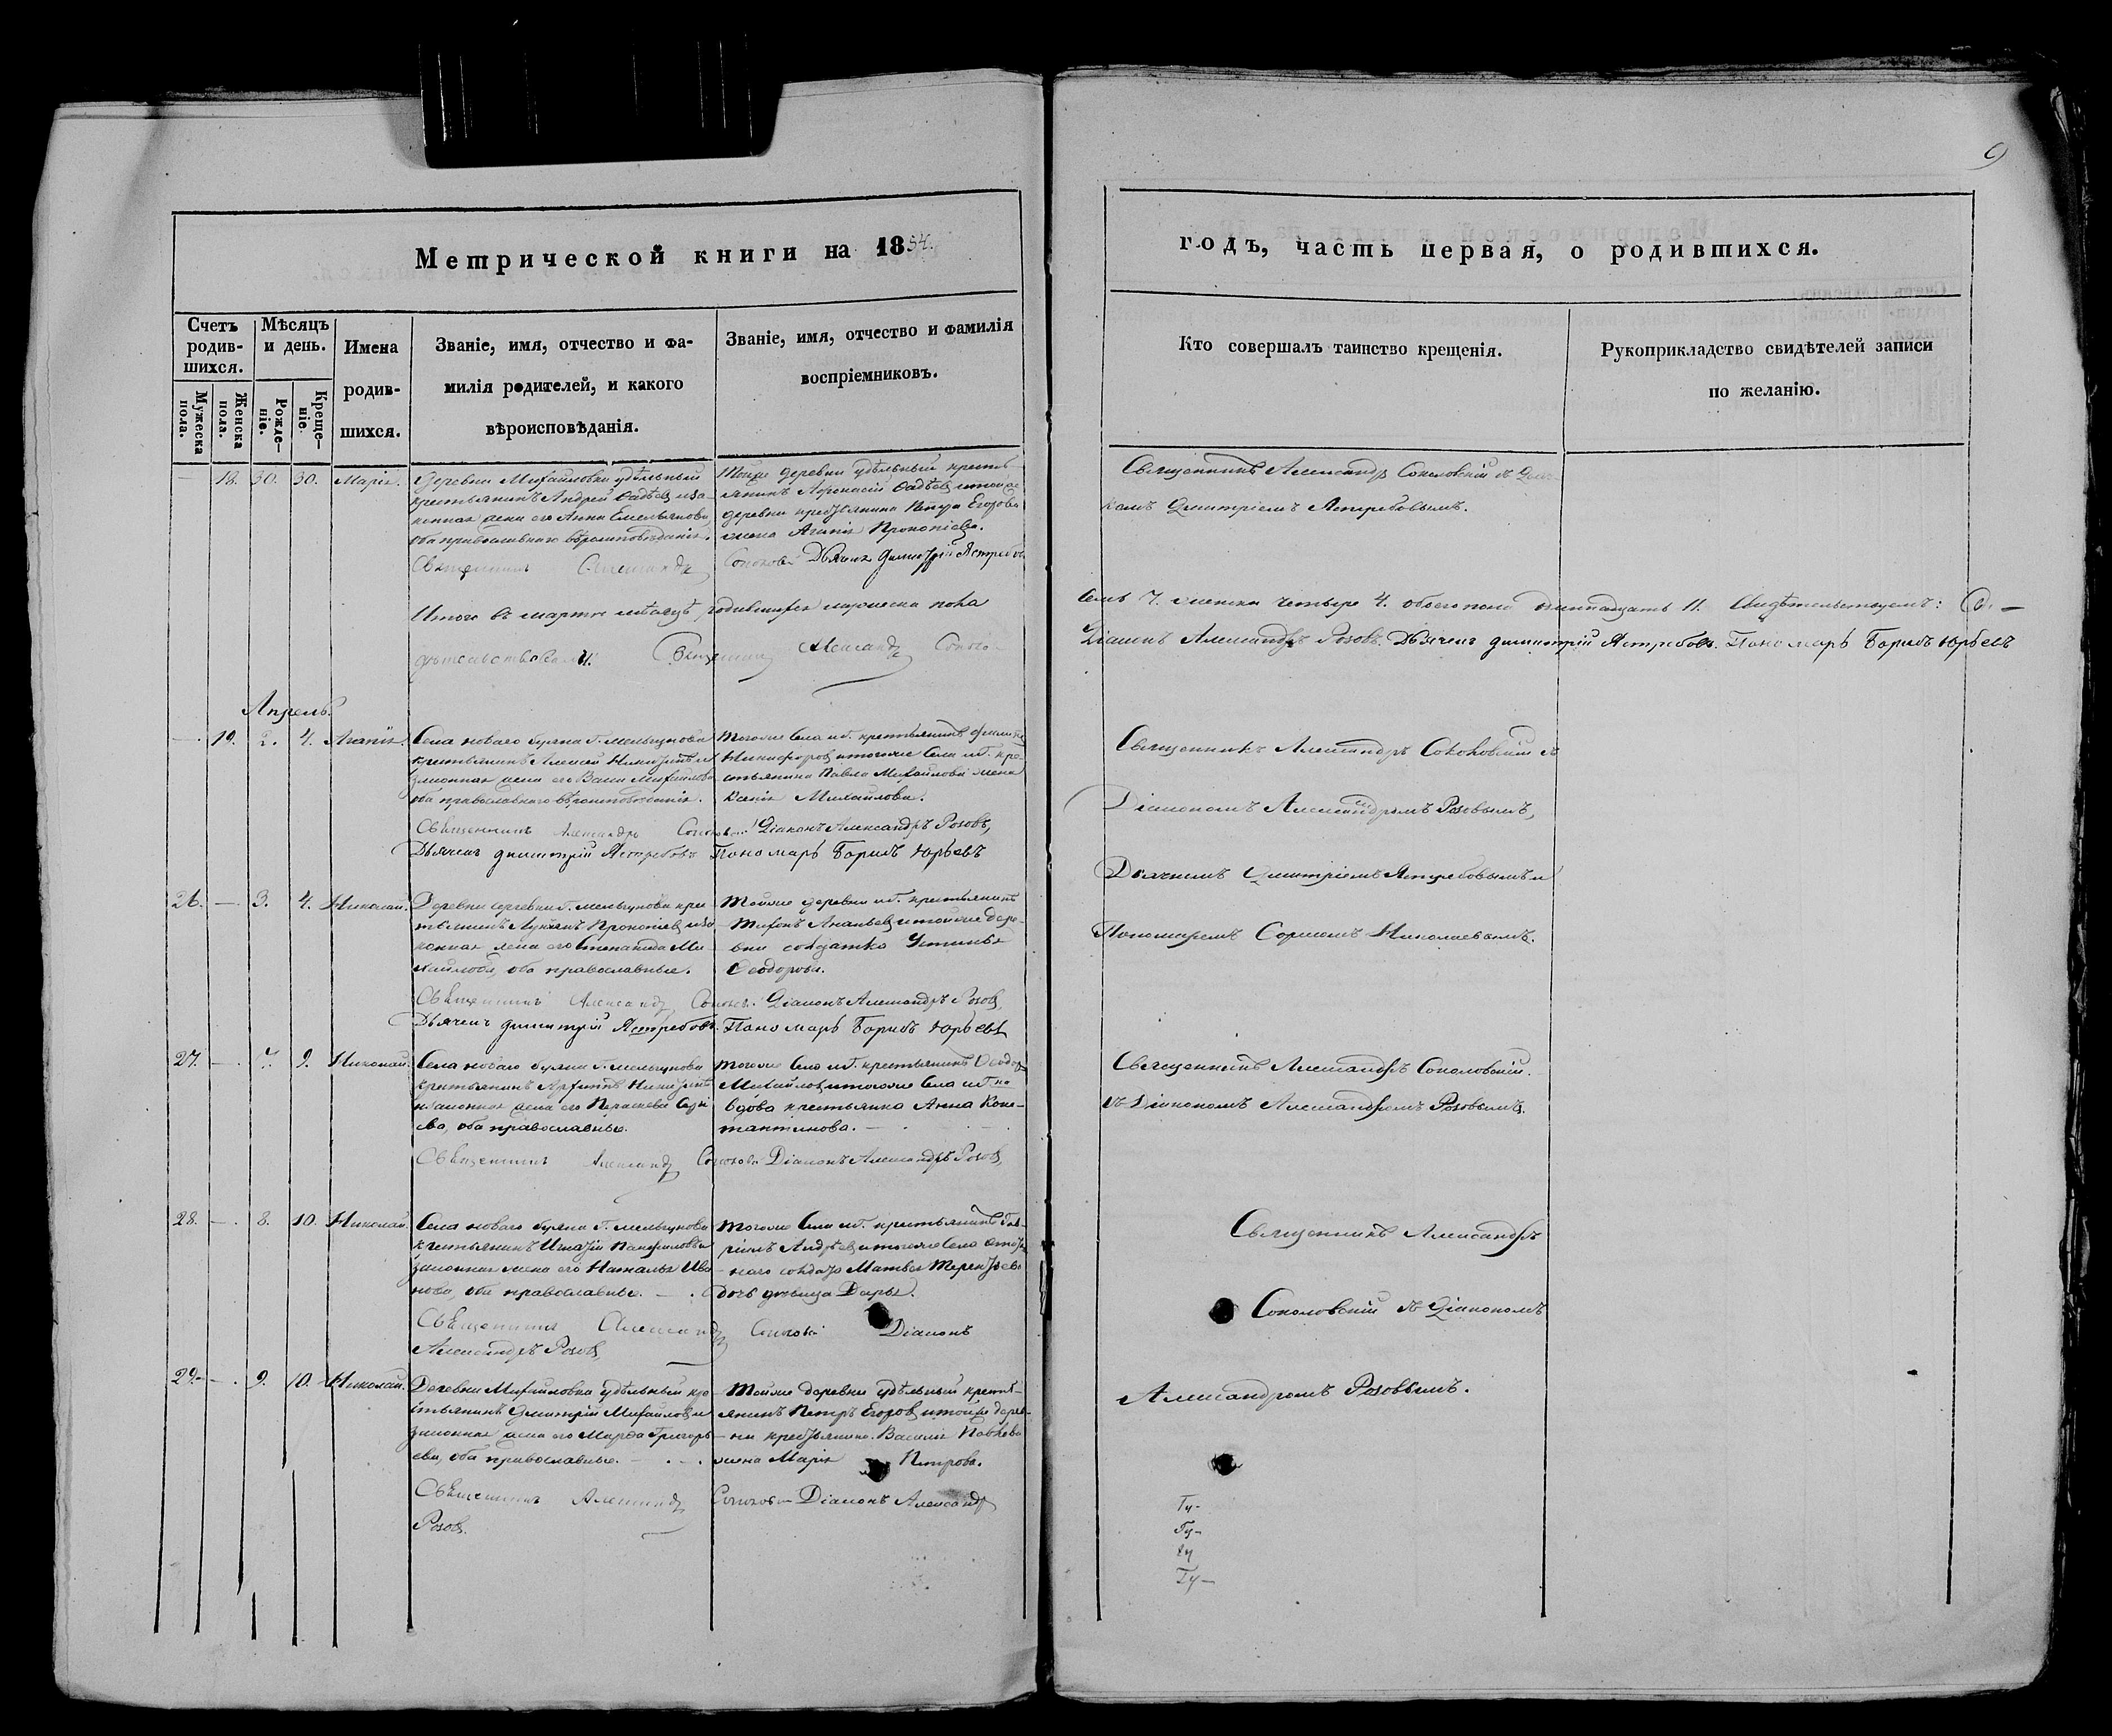 9
Метрической книги на 1854.
годъ, часть первая, о родившихся.
Счетъ родив-шихся.
Мужеска пола.
Женска пола.
Мѣсяцъ и день.
Рожде-ніе.
Креще-ніе.
Имена
родив-
шихся.
Званіе, имя, отчество и фа-
милія родителей, и какого
вѣроисповѣданія.
Званіе, имя, отчество и фамилія
воспріемниковъ.
Кто совершалъ таинство крещенія.
Рукоприкладство свидѣтелей записи
по желанію.
— 18. 30. 30. Марія.
Деревни Михайловки удѣльный
крестьянинъ Андрей Фадѣевъ и за-
конная жена его Анна Емельянова,
оба православнаго вѣроисповѣданія.
Тойже деревни удѣльный кресть-
янинъ Афонасій Фадѣевъ и тойже
деревни крестьянина Петра Егорова
жена Агапія Прокопіева.
Священникъ Александръ Соколовскій съ Дьяч-
комъ Димитріемъ Ястребовымъ.
Священникъ Александръ Дьячекъ Димитрій Ястребовъ
Итого въ мартѣ мѣсяцѣ родившихся мужеска пола
семь 7. женска четыре 4. обоего пола одиннадцать 11. Свидѣтельствуемъ:
Священникъ Александръ
Діаконъ Александръ Розовъ. Дьячекъ Димитрій Ястребовъ. Пономарь Борисъ Юрьевъ
Апрель.
— 19. 2. 4. Агапія.
Села новаго буяна г. мельгунова
крестьянинъ Алексей Никитинъ и
законная жена его Михайлова
оба православнаго вѣроисповѣданія.
Тогоже Села г. крестьянинъ
Никифоровъ и тогоже Села г. кре-
стьянина Павла Михайлова жена
Ксенія Михайлова.
Священникъ Александръ Соколовскій съ
Діакономъ Александромъ Розовымъ,
Дьячкомъ Димитріемъ Ястребовымъ и
Священникъ Александръ Діаконъ Александръ Розовъ,
Дьячекъ Димитрій Ястребовъ Пономарь Борисъ Юрьевъ
26. — 3. 4. Николай.
Деревни г. мельгунова крес-
Прокопіевъ и за-
конная жена его Степанида Ми-
хайлова, оба православные.
Тойже деревни г. крестьянинъ
Тихонъ Ананьевъ и тойже дере-
вни солдатка Устинья
Феодорова.
Пономаремъ Николаевымъ.
Священникъ Александръ Діаконъ Александръ Розовъ,
Дьячекъ Димитрій Ястребовъ. Пономарь Борисъ Юрьевъ
27. — 7. 9. Николай.
Села новаго буяна г. мельгунова
крестьянинъ Никитинъ
и законная жена его Параскева
оба православные.
Тогоже Села г. крестьянинъ Феодоръ
Михайловъ и тогоже Села
вдова крестьянка Анна Конс-
тантинова. —
Священникъ Александръ Соколовскій.
съ Діакономъ Александромъ Розовымъ.
Священникъ Александръ Діаконъ Александръ Розовъ,
28. — 8. 10. Николай.
Села новаго буяна г. мельгунова
крестьянинъ Панфиловъ и
законная жена его Наталья Ива-
нова, оба православные. —
Тогоже Села г. крестьянинъ Гав-
ріилъ Андрѣевъ и тогоже Села
солдата Матвея Терентьева
дочь девица Дарья.
Священникъ Александръ
Соколовскій съ Діакономъ
Священникъ Александръ Діаконъ
Александръ Розовъ,
29. — 9. 10. Николай.
Деревни Михайловки удѣльный кре-
стьянинъ Димитрій Михайловъ и
законная жена его Марфа Григорь-
ева, оба православные. —
Тойже деревни удѣльный кресть-
янинъ Петръ Егоровъ и тойже дерев-
ни крестьянина Василія Павлова
жена Марія Петрова.
Александромъ Розовымъ.
Священникъ Александръ Діаконъ Александръ
Розовъ.